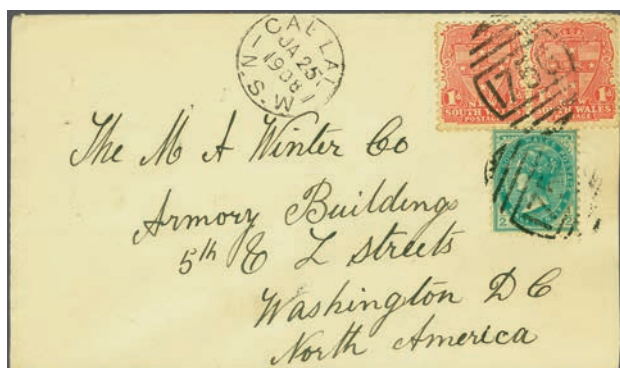 CAL LAL
JA 25
1908
N.S.W
1d
SOUTH W
POSTAG
1d
WALES
The M A Winter Co
Armory Buildings
5th & L streets
Washington D C
North America